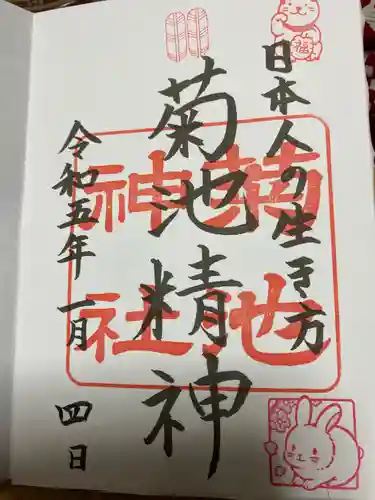 日本人の生き方
菊池精神
菊池
神社
令和五年 一月 四日
福